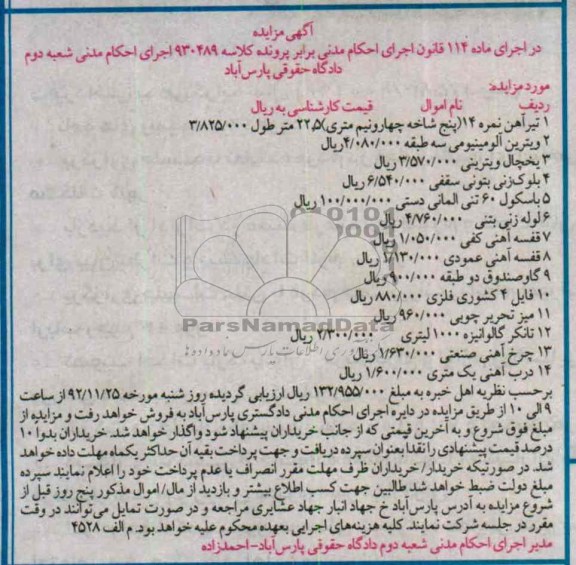 آگهی مزایده
در اجرای ماده ۱۱۴ قانون اجرای احکام مدنی برابر پرونده کلاسه ۹۳۰۴۸۹ اجرای احکام مدنی شعبه دوم
دادگاه حقوقی پارس‌آباد
مورد مزایده:
ردیف نام اموال قیمت کارشناسی به ریال
۱ تیرآهن نمره ۱۴(پنج شاخه چهارونیم متری)۲۲,۵ متر طول ۳/۸۲۵/۰۰۰
۲ ویترین آلومینیومی سه طبقه ۴/۰۸۰/۰۰۰ریال
۳ یخچال ویترینی ۳/۵۷۰/۰۰۰ ریال
۴ بلوک‌زنی بتونی سقفی ۶/۵۴۰/۰۰۰ ریال
۵ باسکول ۶۰ تنی المانی دستی ۱۰۰/۰۰۰/۰۰۰ ریال
۶ لوله زنی بتنی ۴/۷۶۰/۰۰۰ ریال
۷ قفسه آهنی کفی ۱/۰۵۰/۰۰۰ ریال
۸ قفسه آهنی عمودی ۱/۱۳۰/۰۰۰ ریال
۹ گاوصندوق دو طبقه ۹۰۰/۰۰۰ ریال
۱۰ فایل ۴ کشوری فلزی ۸۸۰/۰۰۰ ریال
۱۱ میز تحریر چوبی ۹۶۰/۰۰۰ ریال
ParsNamadData
۱۲ تانکر گالوانیزه ۱۰۰۰ لیتری ۲/۳۰۰/۰۰۰ ریال
۱۳ چرخ آهنی صنعتی ۱/۶۳۰/۰۰۰ ریال
۱۴ درب آهنی یک متری ۱/۶۰۰/۰۰۰ ریال
برحسب نظریه اهل خبره به مبلغ ۱۳۲/۹۵۵/۰۰۰ ریال ارزیابی گردیده روز شنبه مورخه ۹۲/۱۱/۲۵ از ساعت
۹ الی ۱۰ از طریق مزایده در دایره اجرای احکام مدنی دادگستری پارس‌آباد به فروش خواهد رفت و مزایده از
مبلغ فوق شروع و به آخرین قیمتی که از جانب خریداران پیشنهاد شود واگذار خواهد شد. خریداران بدوا ۱۰
درصد قیمت پیشنهادی را نقدا بعنوان سپرده دریافت و جهت پرداخت بقیه آن حداکثر یکماه مهلت داده خواهد
شد. در صورتیکه خریدار/خریداران ظرف مهلت مقرر انصراف یا عدم پرداخت خود را اعلام نمایند سپرده
مبلغ دولت ضبط خواهد شد طالبین جهت کسب اطلاع بیشتر و بازدید از مال/اموال مذکور پنج روز قبل از
شروع مزایده به آدرس پارس‌آباد خ جهاد انبار جهاد عشایری مراجعه و در صورت تمایل می‌توانند در وقت
مقرر در جلسه شرکت نمایند. کلیه هزینه‌های اجرایی بعهده محکوم علیه خواهد بود. م الف ۴۵۲۸
مدیر اجرای احکام مدنی شعبه دوم دادگاه حقوقی پارس‌آباد- احمدزاده